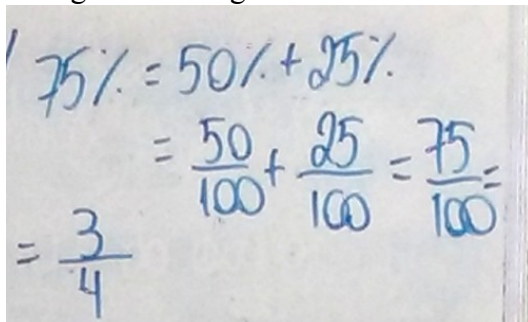 75% = 50% + 25%
= 50/100 + 25/100 = 75/100 =
= 3/4